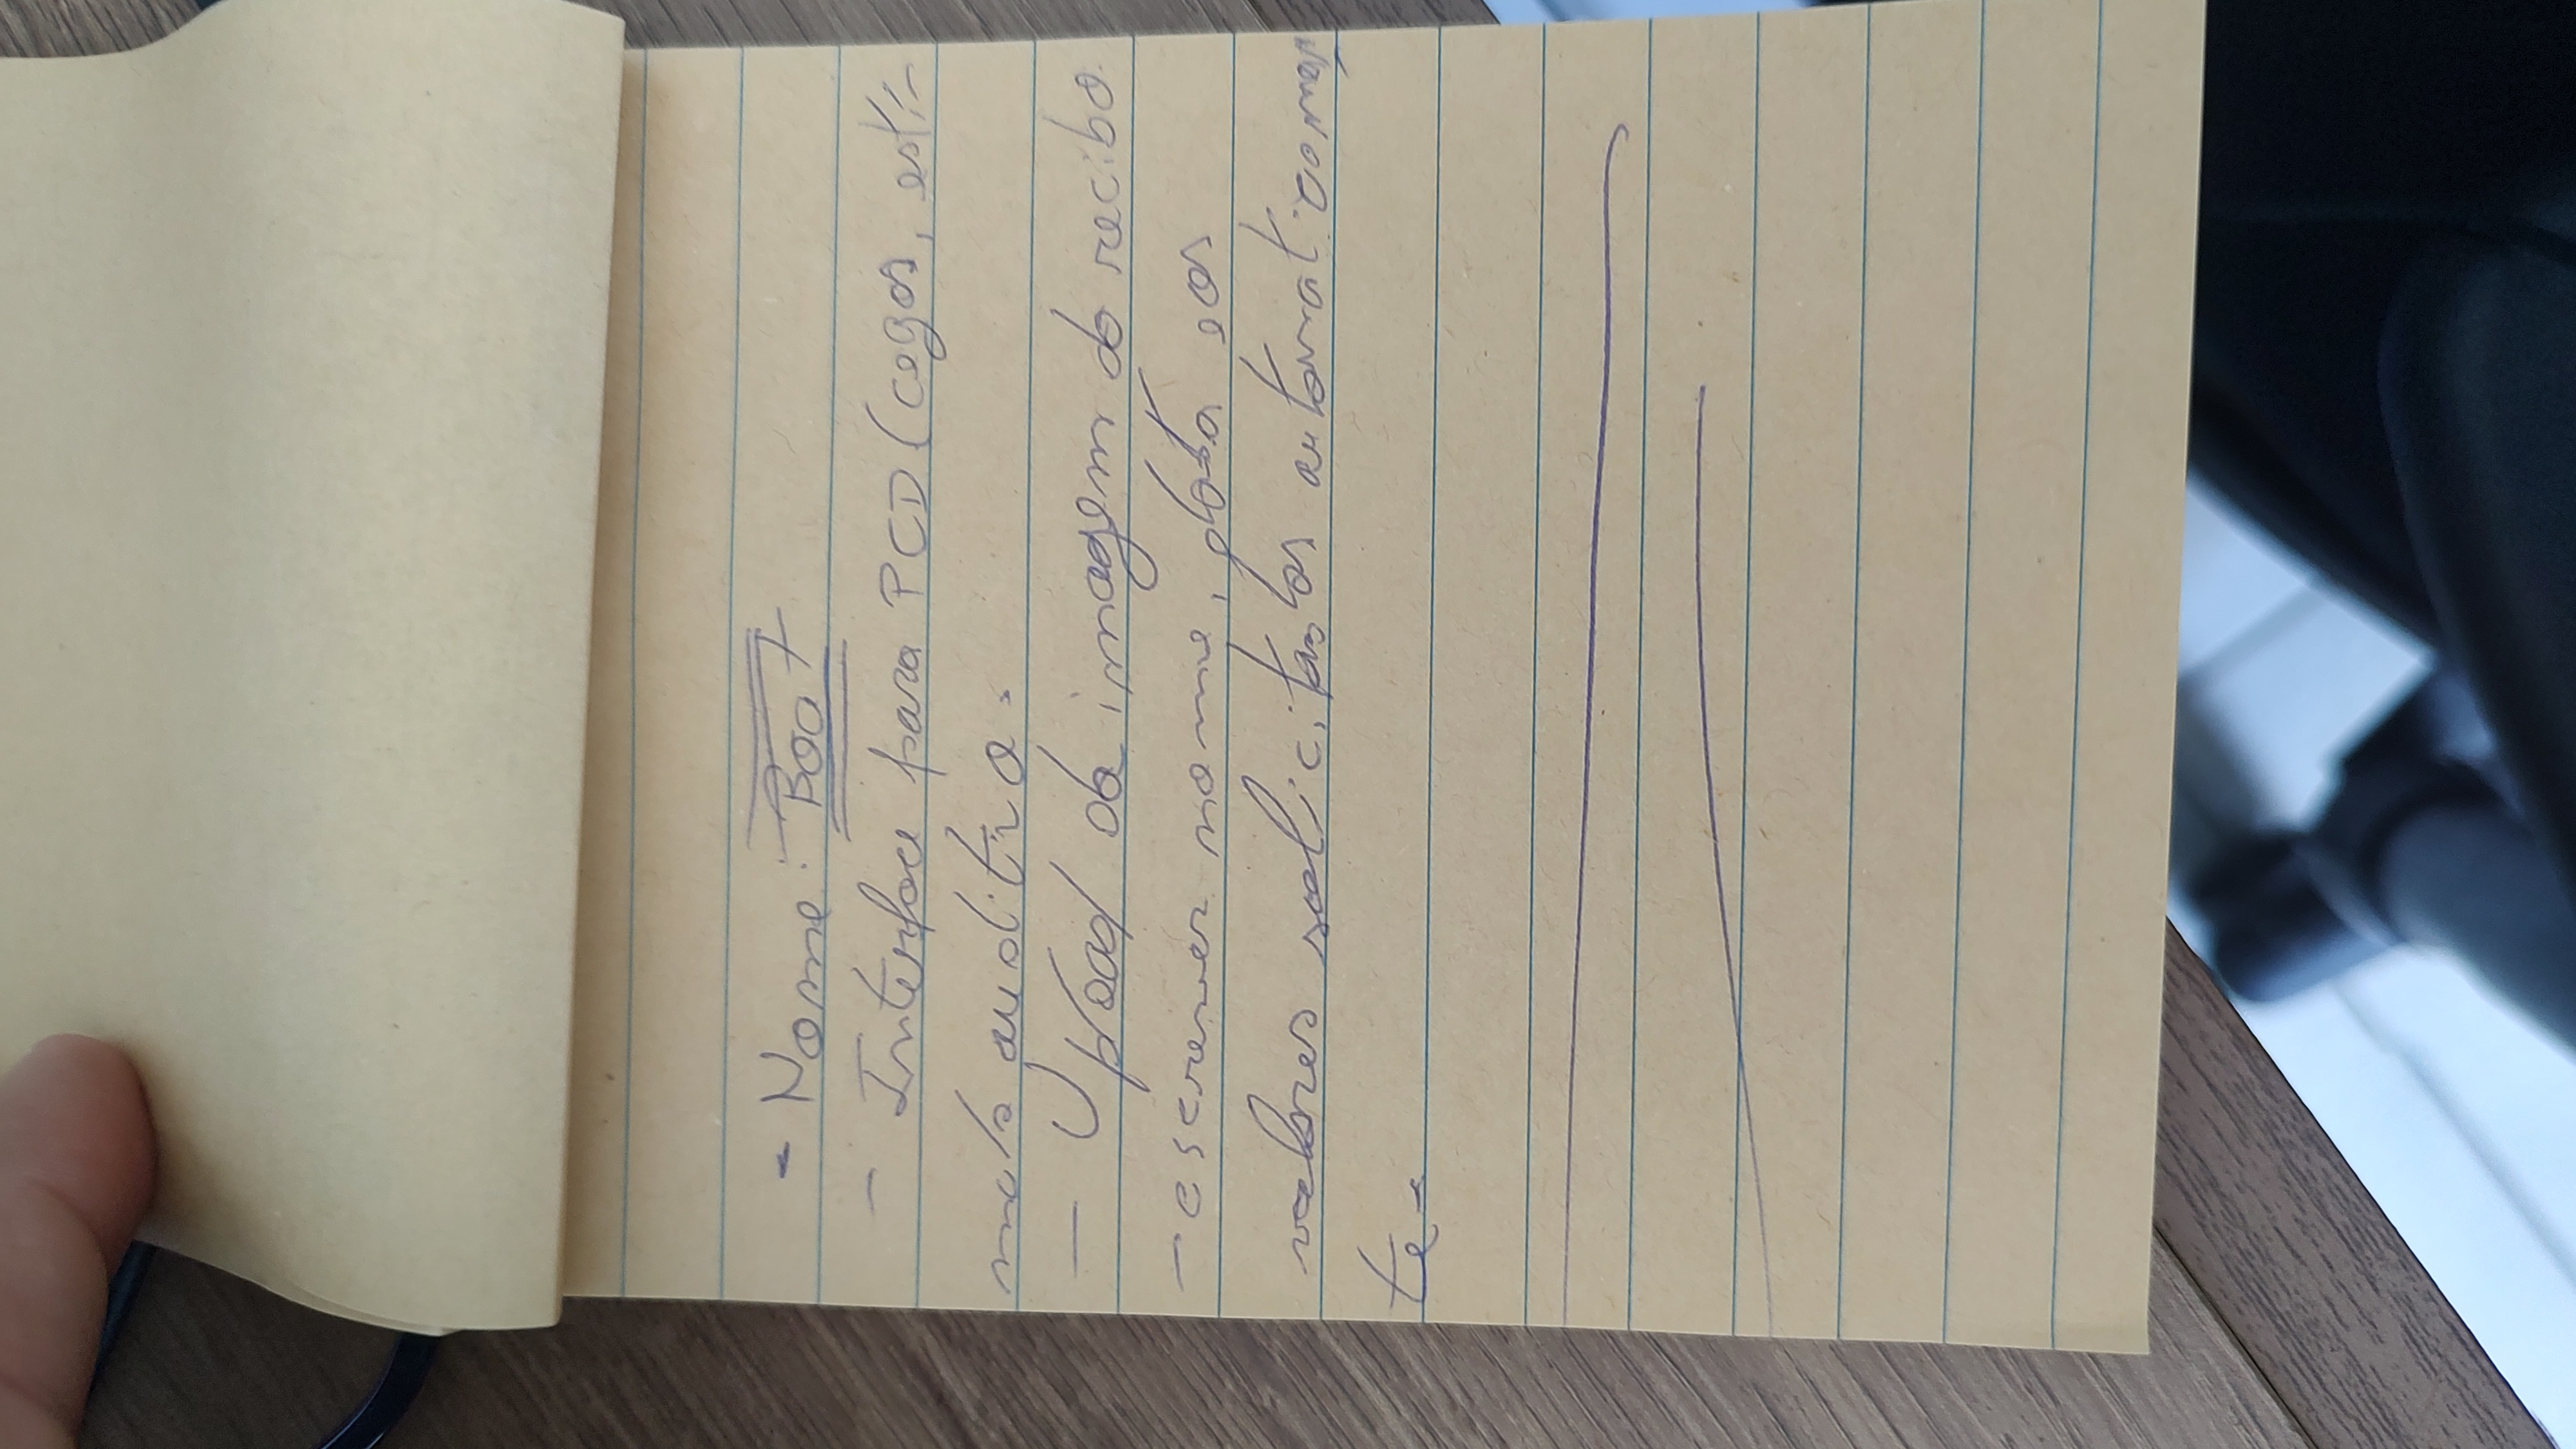 - Nome: Boat
- Interface para PCD (cegos, estí-
mulo auditivo.
- Upload da imagem do recibo.
- escrever nome, data e os
valores solicitados automaticamen
te.